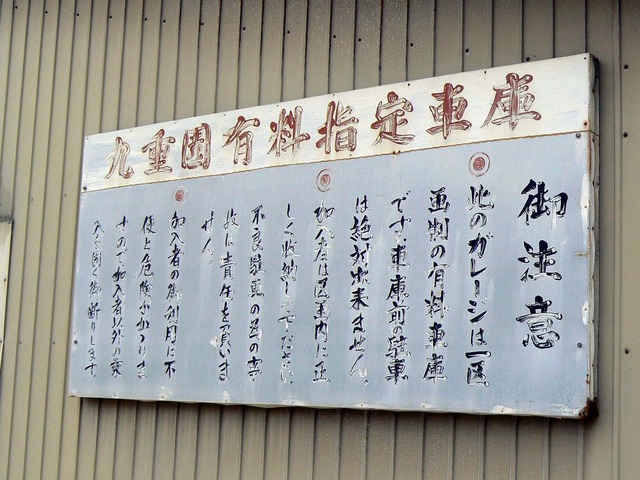 九重園有料指定車庫
御注意
此のガレージは一区
画制の有料車庫
です。車庫前の駐車
は絶対出来ません。
加入者は区画内に正
しく収納して下ださい
不良駐車の為の事
故に責任を負いま
せん。
加入者の御利用に不
便と危険がかゝりま
すので加入者以外の乗
入を固く御断りします。